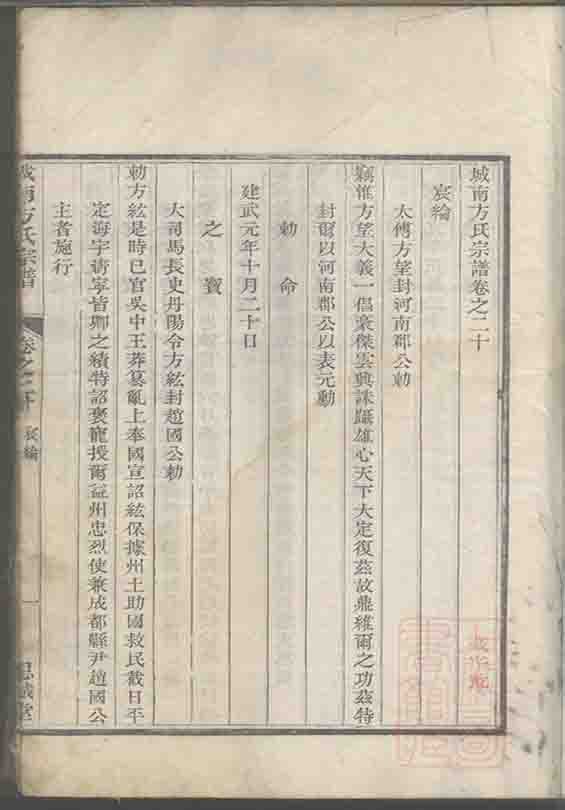 城南方氏宗譜卷之二十
宸綸
太傅方望封河南郡公勅
竊惟方望大義一倡豪傑雲興誅躡雄心天下大定復茲故鼎維爾之功茲特
封爾以河南郡公以表元勳
勅命
建武元年十月二十日
之寶
大司馬長史丹陽令方紘封趙國公勅
勅方紘是時已官吳中王莽篡亂上奉國宣詔紘保據州土助國救民戡日平
定海宇清寧皆卿之績特詔褒寵授爾益州忠烈使兼成都縣尹趙國公
主者施行
城南方氏宗譜
卷之二十
宸綸
一
思誠堂